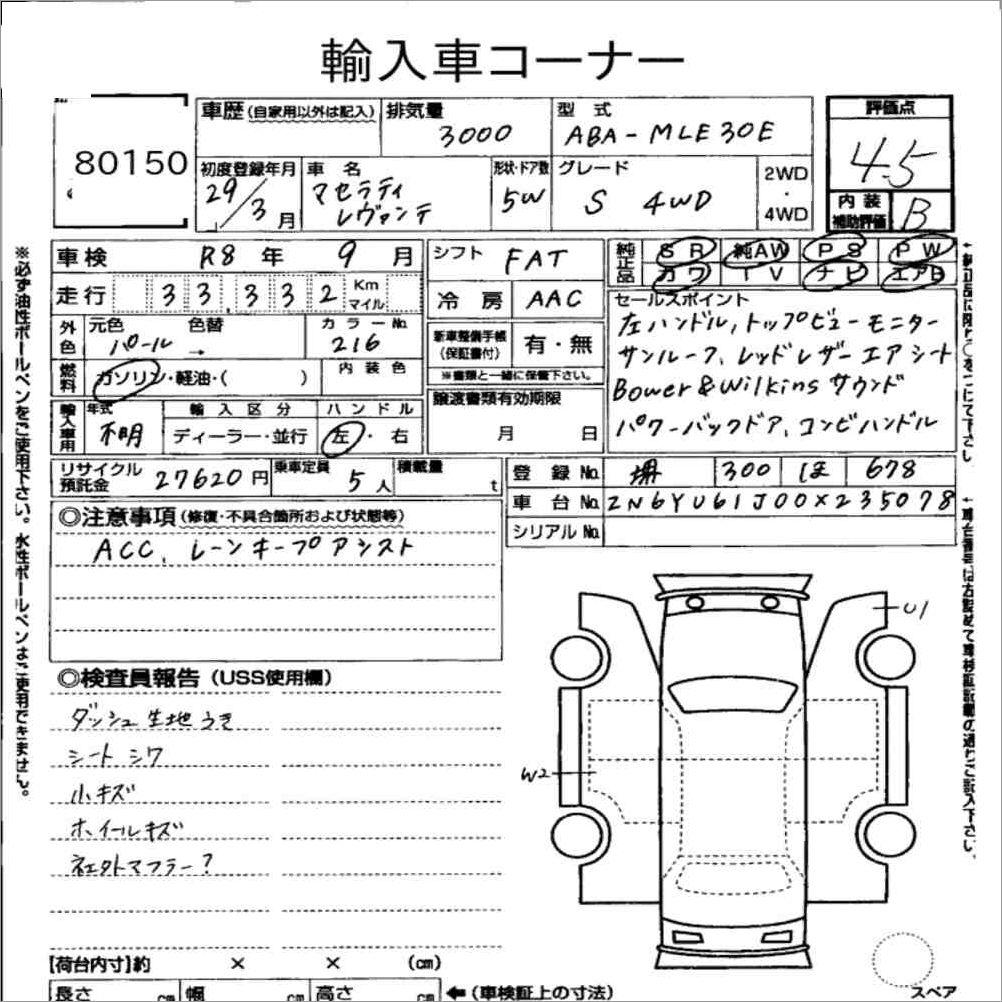 輸入車コーナー
80150
車歴(自家用以外は記入)
排気量
3000
型式
ABA-MLE30E
評価点
4.5
初度登録年月
29/3月
車名
マセラティ
レヴァンテ
形状・ドア数
5W
グレード
S 4WD
2WD
・
4WD
内装
補助評価
B
車検 R8年 9月
シフト FAT
純正品
SR 純AW PS PW
カワ TV ナビ エアB
走行 33,332 Km マイル
冷房 AAC
セールスポイント
左ハンドル,トップビューモニター
サンルーフ,レッドレザーエアシート
Bower&Wilkinsサウンド
パワーバックドア、コンビハンドル
外色 元色 色替 カラーNo.
パール → 216
新車整備手帳
(保証書付)
有・無
※書類と一緒に保管下さい。
燃料 ガソリン・軽油・( )
内装色
譲渡書類有効期限
月 日
輸入車用 年式 不明
輸入区分
ディーラー・並行
ハンドル
左・右
リサイクル
預託金
27620円
乗車定員
5人
積載量
t
登録No. 堺 300 ほ 678
車台No. ZN6YU61J00X235078
シリアルNo.
◎注意事項(修復・不具合箇所および状態等)
ACC、レーンキープアシスト
◎検査員報告(USS使用欄)
ダッシュ生地うき
シートシワ
小キズ
ホイールキズ
社外マフラー?
U1
W2
【荷台内寸】約 × × (cm)
長さ cm 幅 cm 高さ cm
←(車検証上の寸法)
スペア
※必ず油性ボールペンをご使用下さい。水性ボールペンはご使用できません。